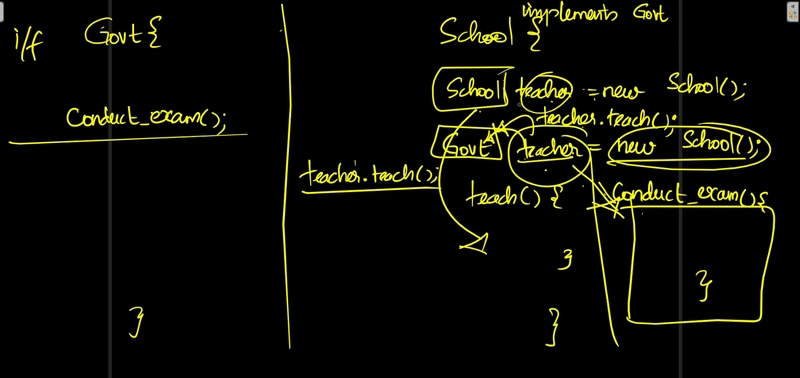 i/f Govt {
Conduct_exam();
}
School { implements Govt
School teacher = new School();
teacher.teach();
Govt teacher = new School();
teacher.teach();
teach() {
}
Conduct_exam() {
}
}